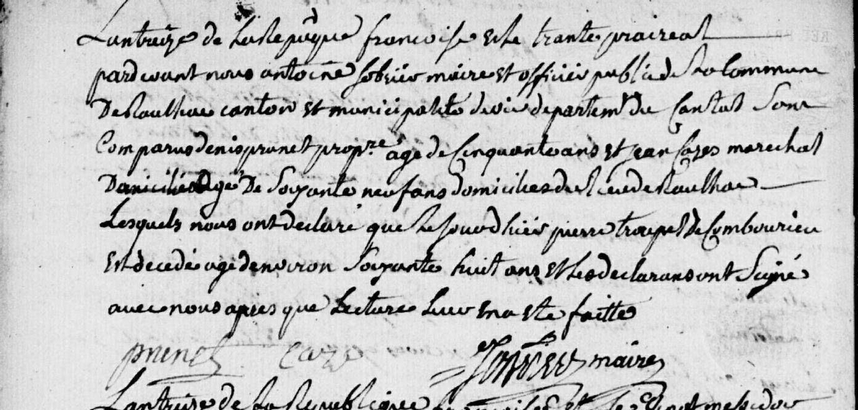 Lantreize de La Repuque francoise et le trante praireal
pardevant nous antoine Sobrier maire et officier public de La Commune
De Raulhac canton et municipalité de vic departemt du Cantal Sont
Comparus denis prunet propre agé de Cinquante ans et jean Cazes marechal
Domicilié agé De Soixante neuf ans domiciliés de Raulhac
Lesquels nous ont declaré que Le jour d'hier pierre troupel de Combourieu
Est decedé agé denviron Soixante huit ans et Les declarans ont Signé
avec nous apres que Lecture Leur en a eté faitte
prunet Cazes maire
Lantreize de La Republique francoise et le messidor